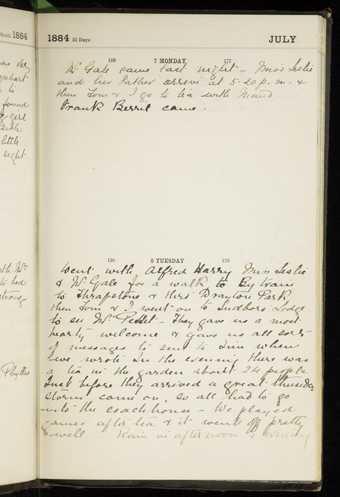 1884
1884 31 Days JULY
7 MONDAY
W. Gale came last night – Miss Leslie
and her father arrive at 5-20 p.m. &
then Tom & I go to tea with Maud
Frank Berril came.
8 TUESDAY
Went with Alfred Harry Miss Leslie
& W. Gale for a walk to By train
to Thrapstone & thro' Drayton Park
then Tom & I went on to Sudboro Lodge
to see Mr – They gave us a most
hearty welcome & gave us all sorts
of messages to send to when
we wrote In the evening there was
a tea in the garden about 24 people
Just before they arrived a great thunder
storm came on, so all had to go
into the coachhouse – We played
games after tea & it went off pretty
well Rain in afternoon & evening